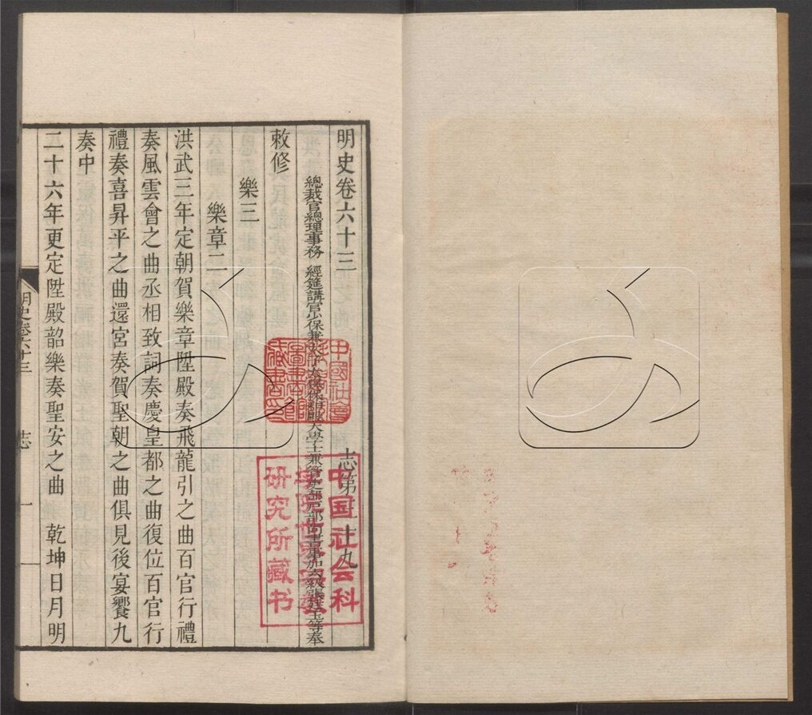 明史卷六十三
志第三十九
總裁官總理事務 經筵講官少保兼太子太保保和殿大學士兼管吏部戶部尚書事加六級張廷玉等奉
敕修
樂三
樂章二
洪武三年定朝賀樂章陞殿奏飛龍引之曲百官行禮
奏風雲會之曲丞相致詞奏慶皇都之曲復位百官行
禮奏喜昇平之曲還宮奏賀聖朝之曲俱見後宴饗九
奏中
二十六年更定陞殿韶樂奏聖安之曲 乾坤日月明
明史卷六十三
志
一
中國社會
圖書館
藏書
中国社会科
学院世界宗教
研究所藏书